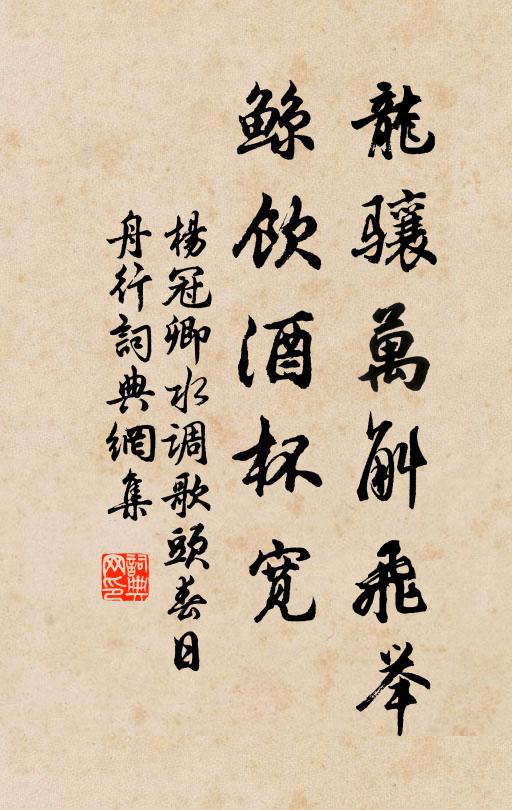 龍驤萬斛飛举
鲸飲酒杯寬
楊冠卿水调歌頭春日
舟行詞典網集
詞典网印